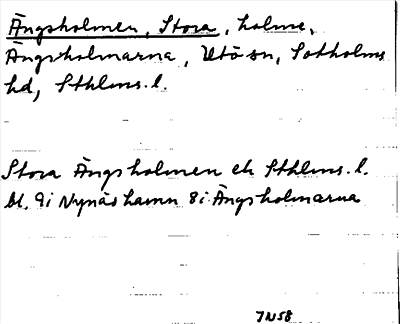 Ängsholmen, Stora, holme,
Ängsholmarna, Utö sn, Sotholms
hd, Sthlms. l.
Stora Ängsholmen ek Sthlms. l.
bl. 9i Nynäshamn 8i Ängsholmarna
7N58